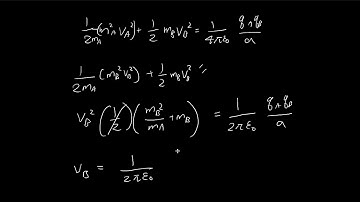 1/2mA (mA² VA²) + 1/2 mB VB² = 1/4πε₀ qAqB/a
1/2mA (mB² VB²) + 1/2 mB VB²
VB² (1/2) (mB²/mA + mB) = 1/2πε₀ qAqB/a
VB = 1/2πε₀